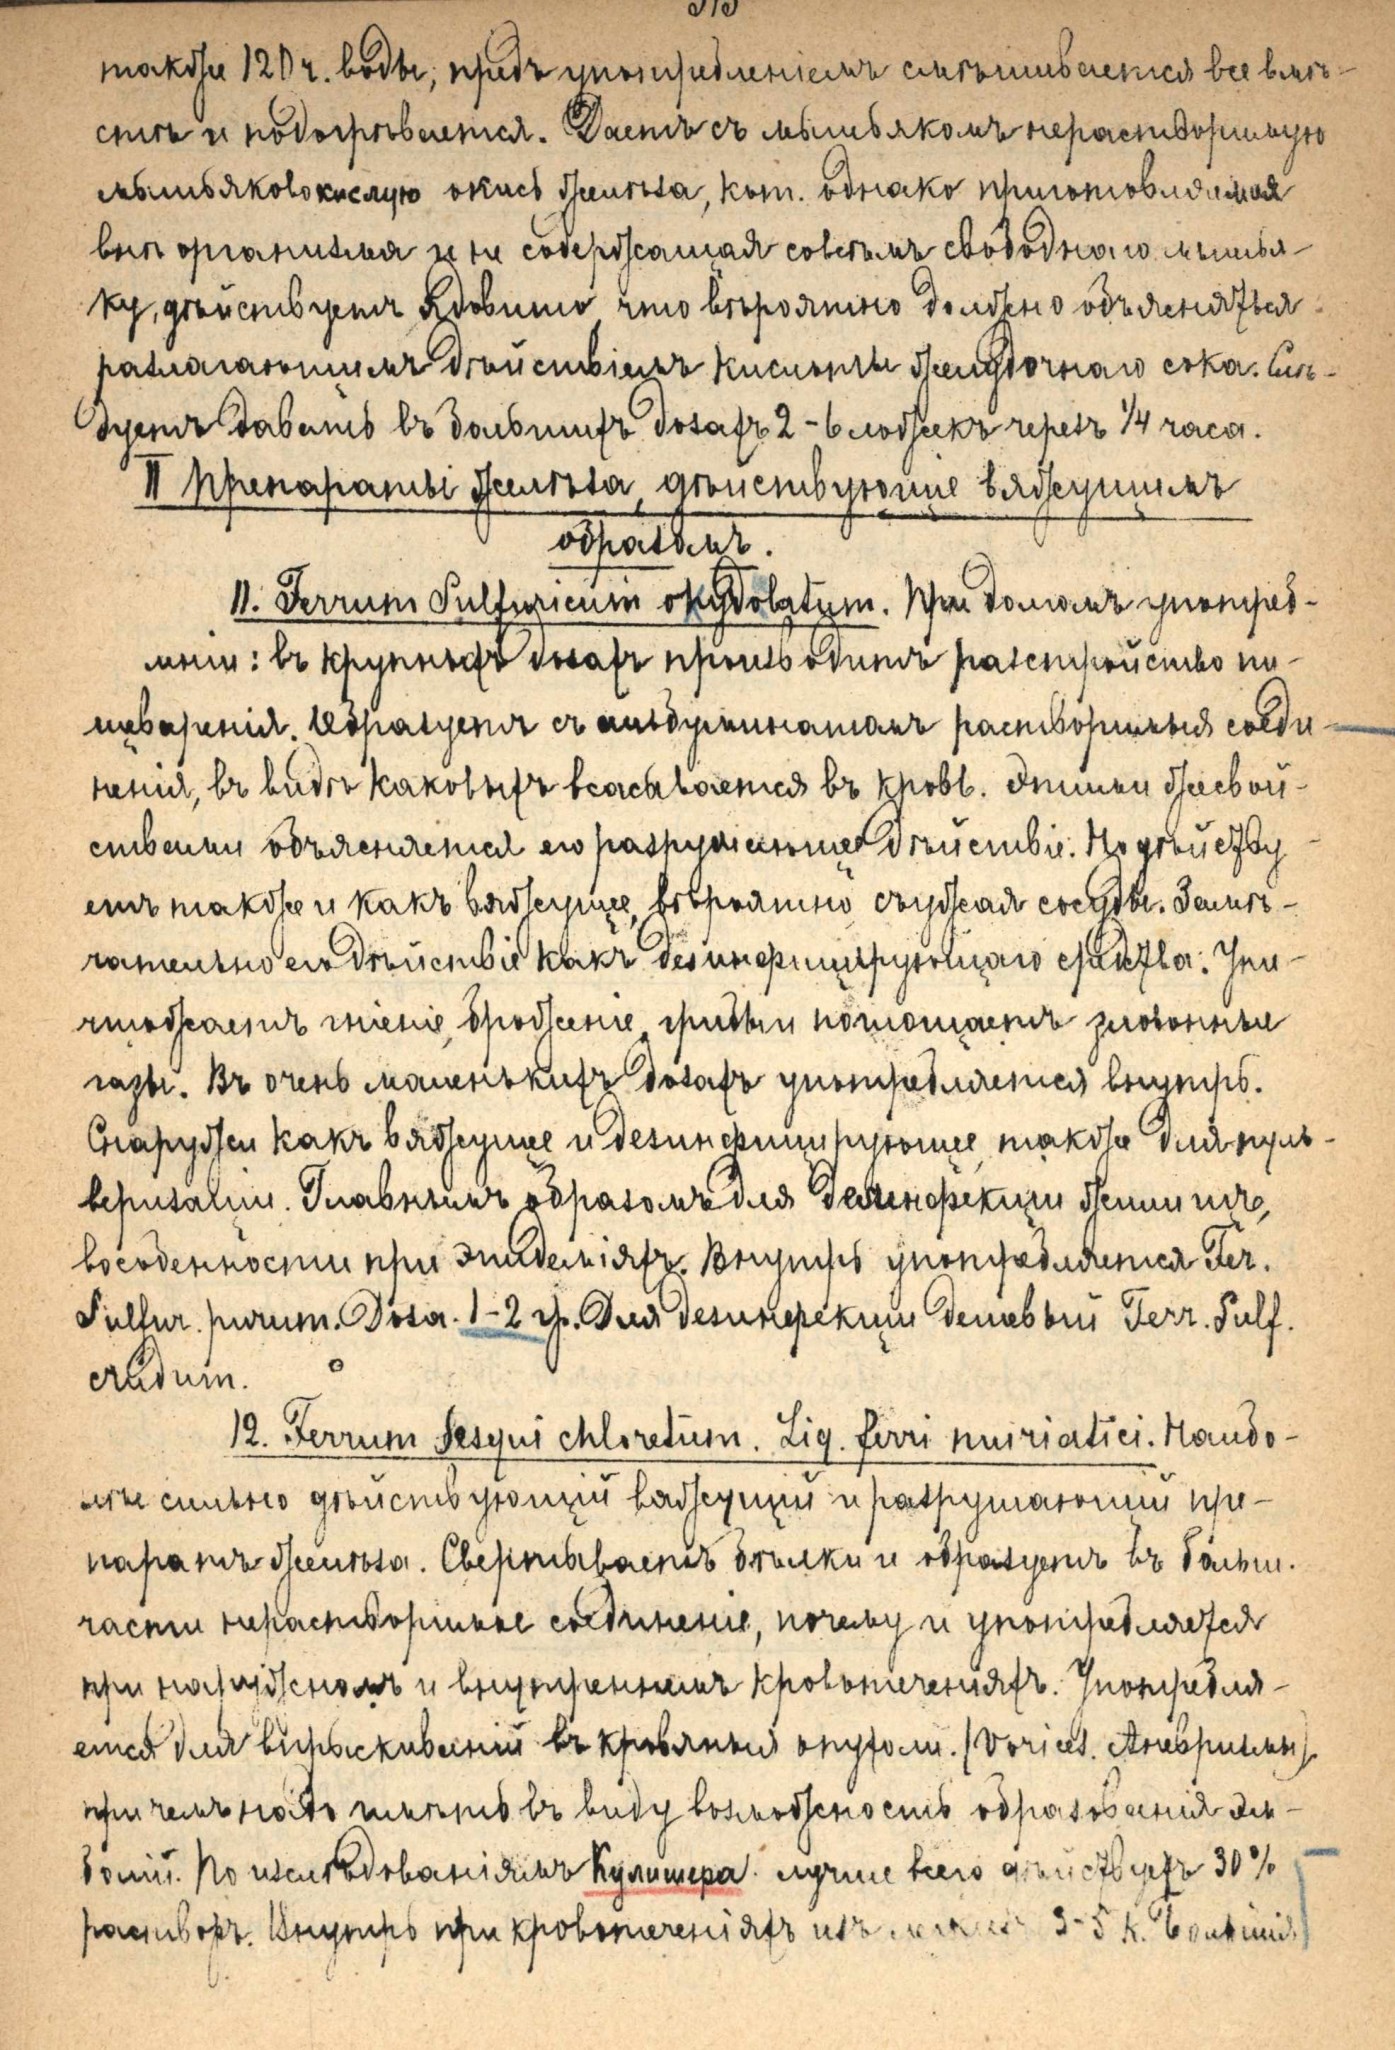 также 120 ч. воды; предъ употребленіемъ смѣшивается все вмѣ-
стѣ и подогрѣвается. Даетъ съ мышьякомъ нерастворимую
мышьяковокислую окись желѣза, кот. однако приготовляемая
внѣ организма и не содержащая совсѣмъ свободнаго мышья-
ку, дѣйствуетъ ядовито, что вѣроятно должно объясняться
разлагающимъ дѣйствіемъ кислоты желудочнаго сока. Слѣ-
дуетъ давать въ большихъ дозахъ 2-6 ложекъ черезъ 1/4 часа.
II Препараты желѣза, дѣйствующіе вяжущимъ
образомъ.
11. Ferrum Sulfuricum oxydolatum. При долгомъ употреб-
леніи: въ крупныхъ дозахъ производитъ разстройство пи-
щеваренія. Образуетъ съ альбуминатомъ растворимыя соеди-
ненія, въ видѣ каковыхъ всасывается въ кровь. Этими же свой-
ствами объясняется его разрушающее дѣйствіе. Но дѣйству
етъ также и какъ вяжущее, вѣроятно, съужая сосуды. Замѣ-
чательно его дѣйствіе какъ дезинфицирующаго средства. Уни-
чтожаетъ гніеніе, броженіе, грибы и поглощаетъ зловонные
газы. Въ очень маленькихъ дозахъ употребляется внутрь.
Снаружи какъ вяжущее и дезинфицирующее, также для пуль-
веризаціи. Главнымъ образомъ для дезинфекціи
вособенности при эпидеміяхъ. Внутрь употребляется Fer.
Sulfur. purum. Доза. 1-2 гр. Для дезинфекціи дешевый Ferr. Sulf.
crudum.
12. Ferrum sesquichloretum. Liq. ferri muriatici. Наибо-
лѣе сильно дѣйствующій вяжущій и разрушающій пре-
паратъ желѣза. Свертываетъ бѣлки и образуетъ въ больш.
части нерастворимое соединеніе, почему и употребляется
при наружномъ и внутреннемъ кровотеченіяхъ. Употребля-
ется для впрыскиваній въ кровяныя опухоли. (Varices. Аневризмы),
при чемъ надо имѣть въ виду возможность образованія эм-
болій. По изслѣдованіямъ Кулишера лучше всего дѣйствуетъ 30%
растворъ. Внутрь при кровотеченіяхъ изъ 3-5 к. Большія